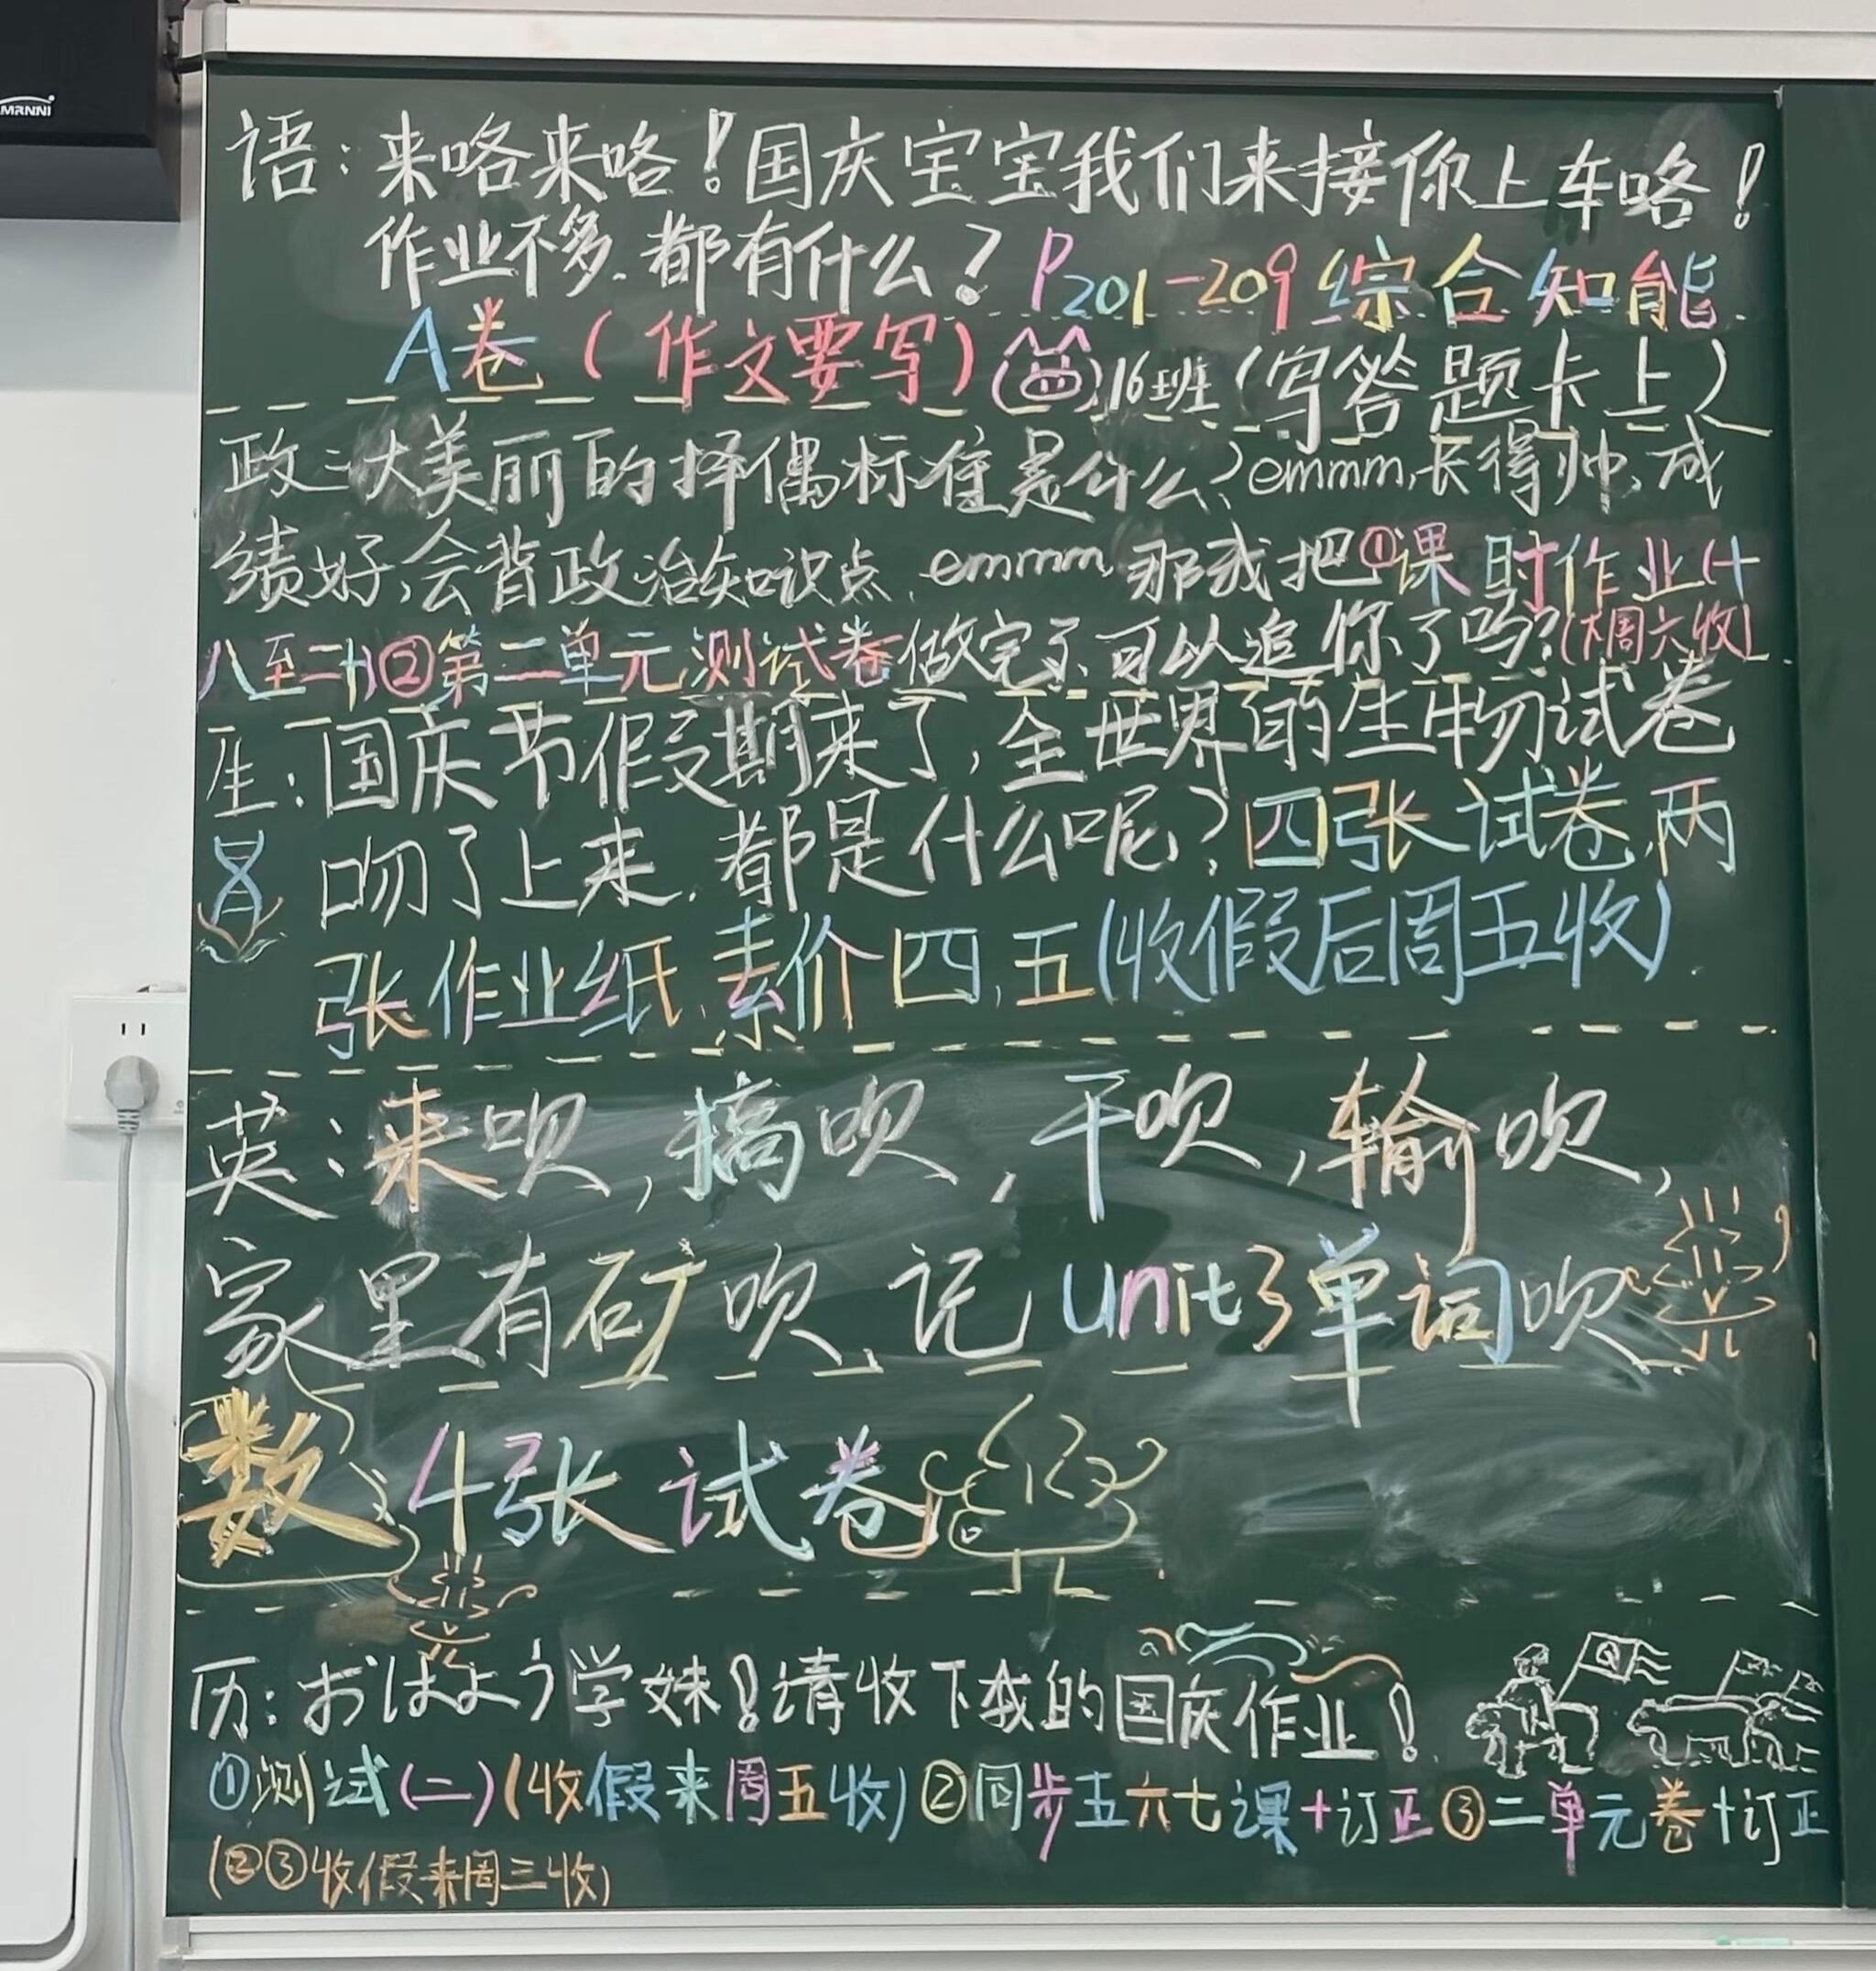 MRNNI
语：来咯来咯！国庆宝宝我们来接你上车咯！
作业不多.都有什么？P201-209综合知能
A卷（作文要写）16班（写答题卡上）
政：大美丽的择偶标准是什么？emmm,长得帅、成
绩好,会背政治知识点.emmm,那我把①课时作业(十
八至二十)②第二单元测试卷做完了,可以追你了吗？(大周六收).
生：国庆节假期来了,全世界的生物试卷
吻了上来.都是什么呢？四张试卷,两
张作业纸.素价四,五(收假后周五收).
英：来呗,搞呗,干呗,输呗,
家里有矿呗.记unit3单词呗
数：4张试卷
历：おはよう学妹！请收下我的国庆作业！
①测试(二)(收假来周五收)②同步五六七课+订正③二单元卷+订正
(②③收假来周三收)